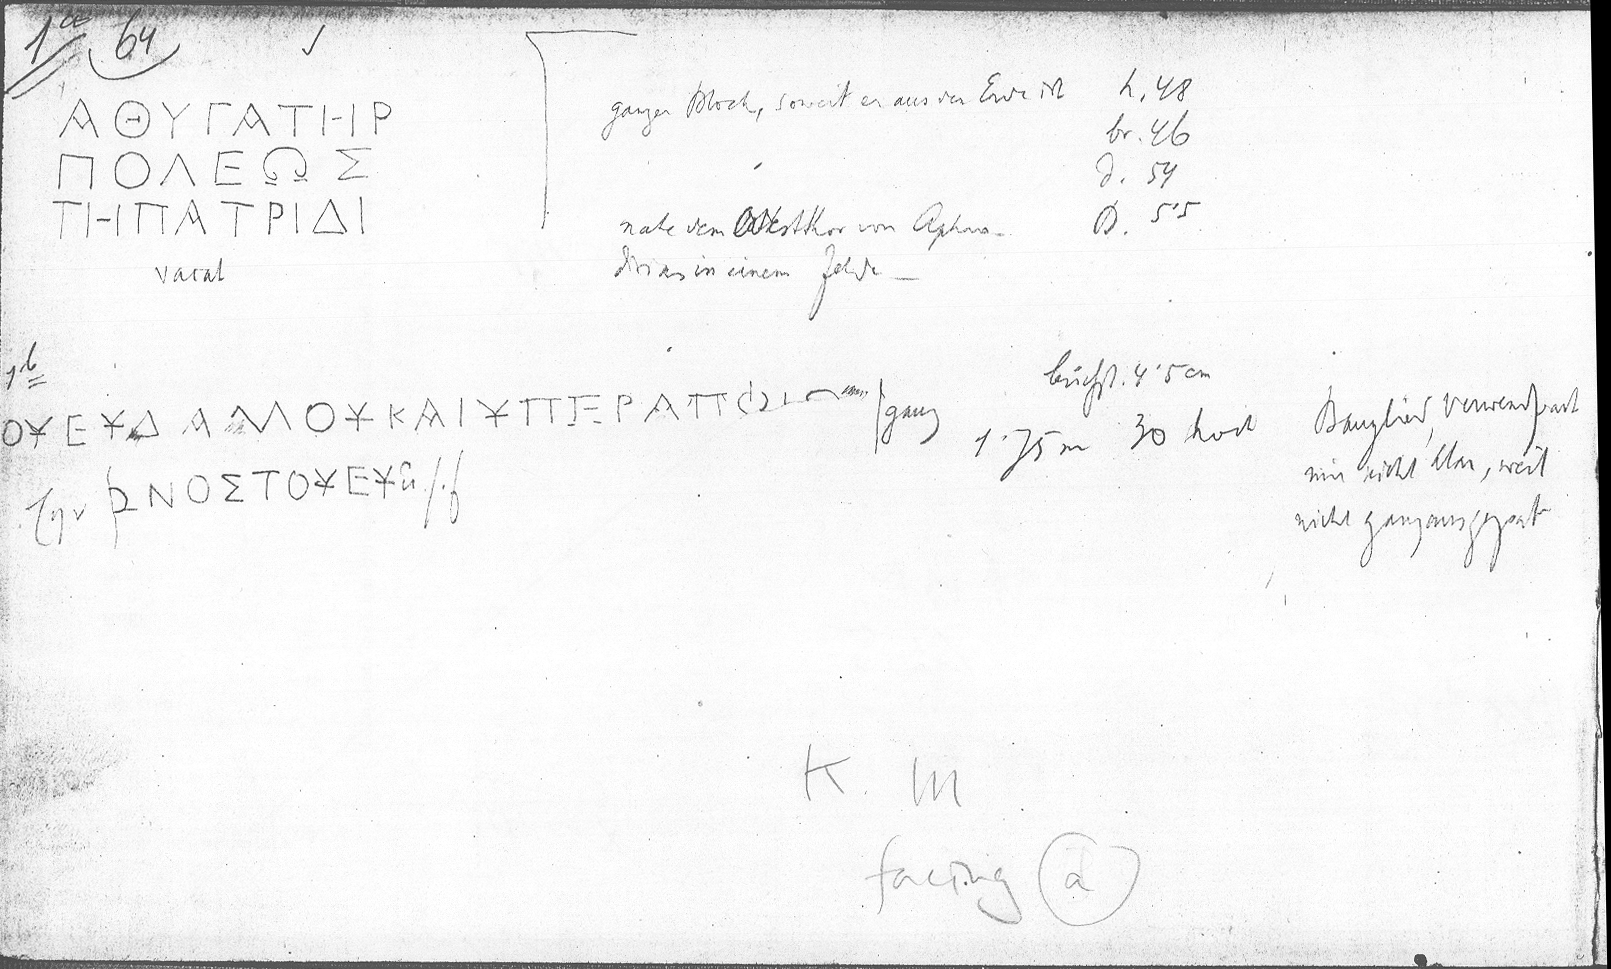 1a 64
ΑΘΥΓΑΤΗΡ
ΠΟΛΕΩΣ
ΤΗΠΑΤΡΙΔΙ
vacat
ganzer Block, soweit er aus der Erde ist h. 48
br. 46
d. 54
nahe dem Osthor von Aphro- B. 5'5
disias in einem Felde
1b
ΟΥΕΥΔΑΛΛΟΥΚΑΙΥΠΕΡΑΠΩ ganz
ΩΝΟΣΤΟΥΕΥ
buchst. 4'5 cm
1'75 m 30 hoch
Bauglied, Verwendbark
mir nicht klar, weil
nicht ganz
K. III
facing a